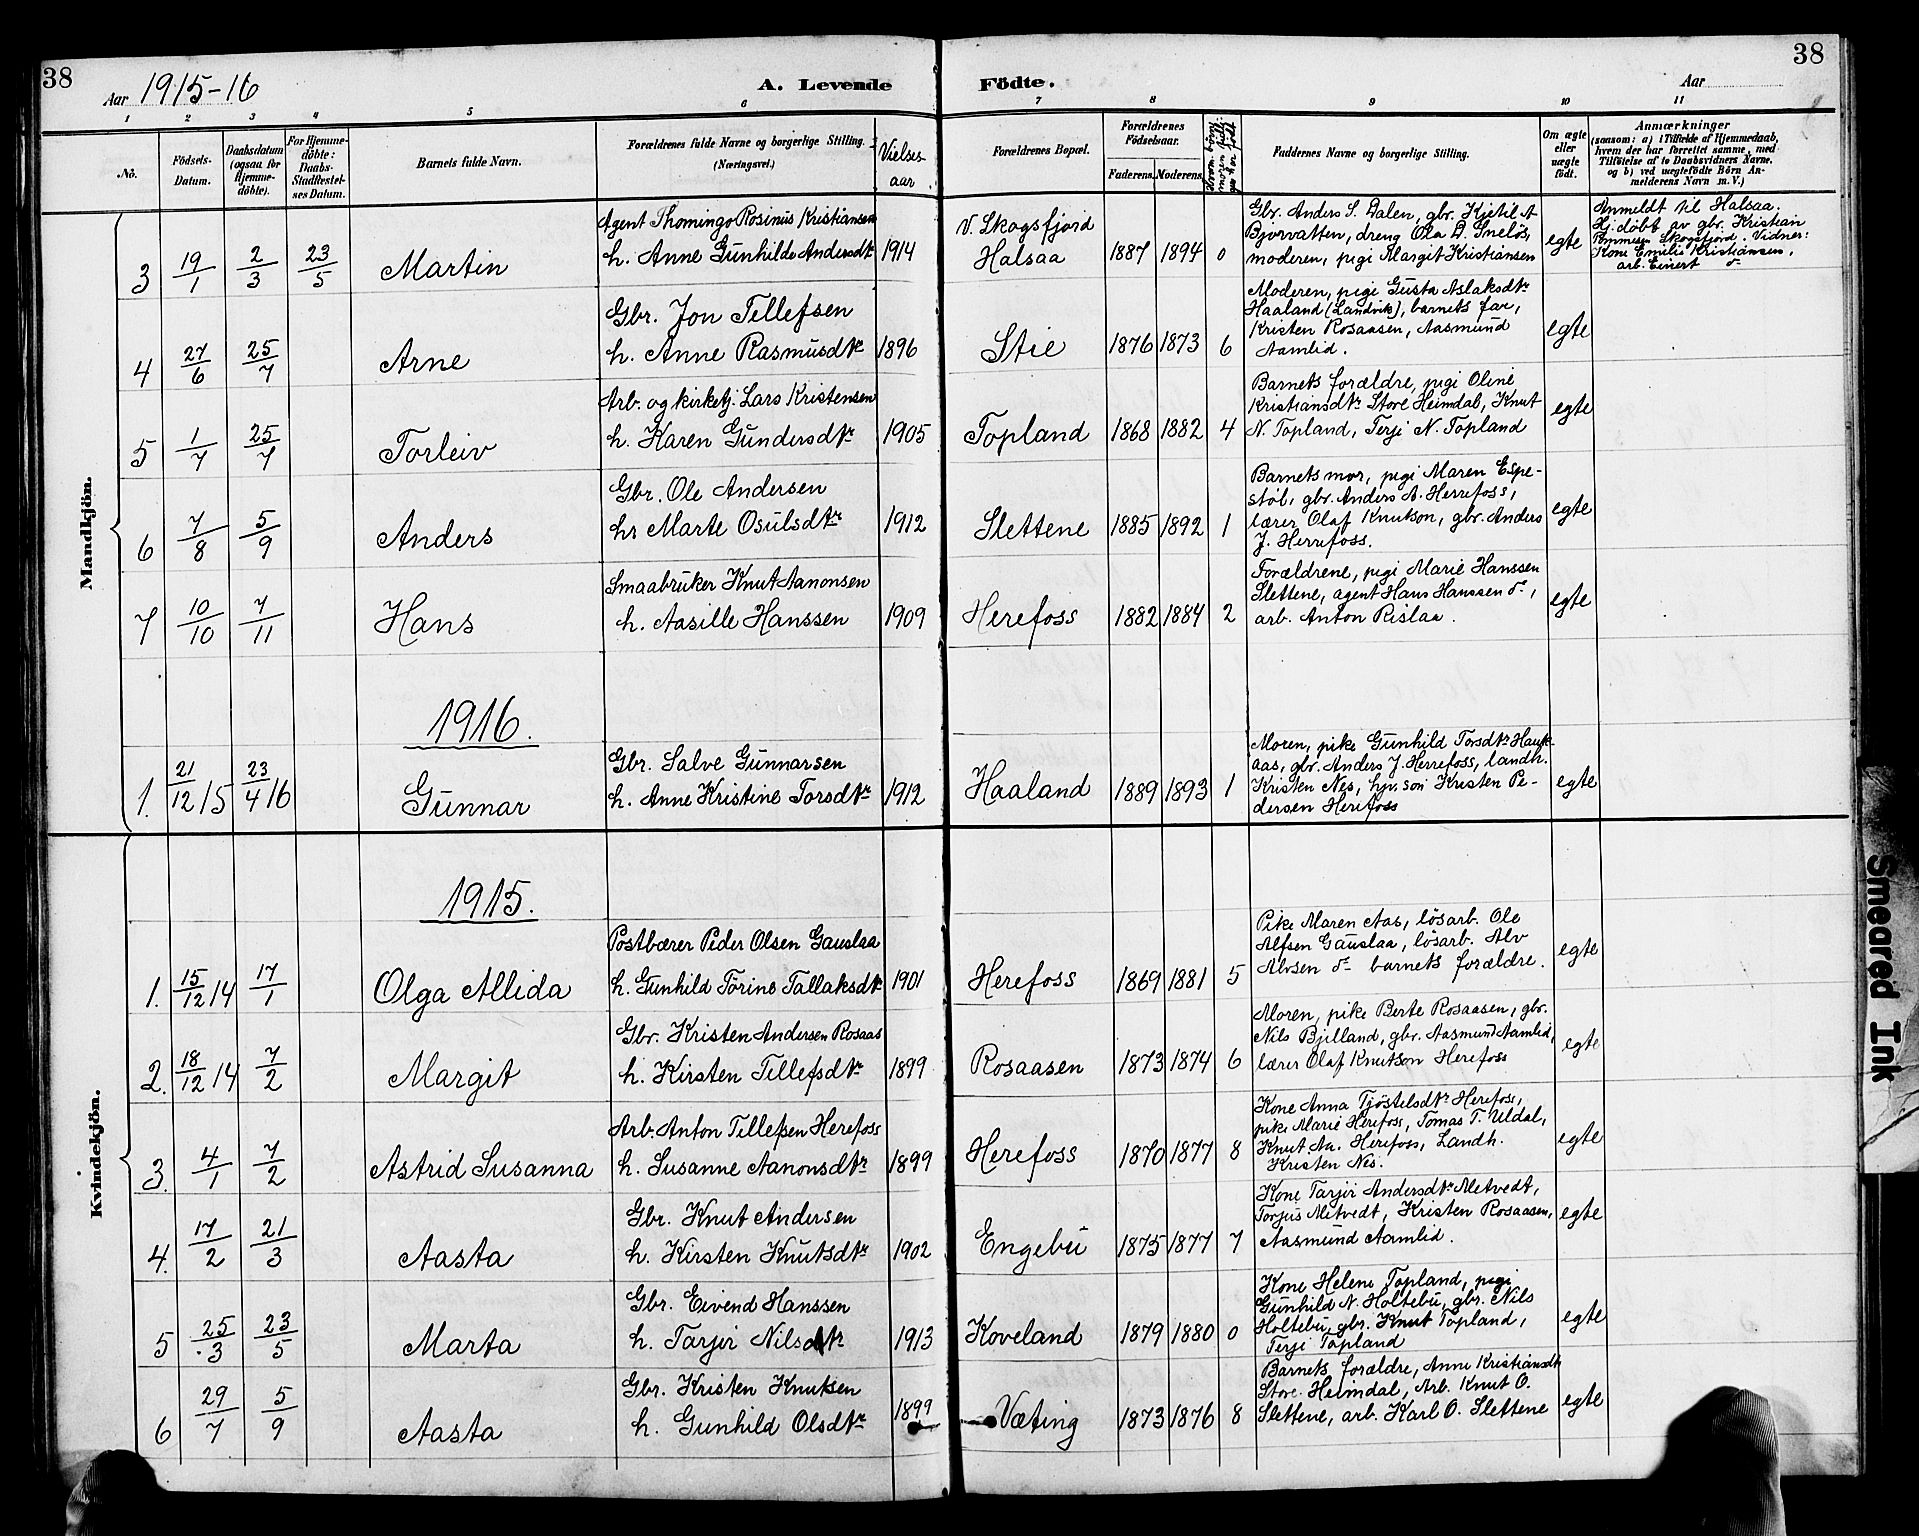 38
38
Aar 1915-16
A. Levende Födte.
Aar
1 2 3 4 5 6 7 8 9 10 11
No.
Födsels-
Datum.
Daabsdatum
(ogsaa for
Hjemme-
döbte).
For Hjemme-
döbte:
Daabs-
Stadfæstel-
ses Datum.
Barnets fulde Navn.
Forældrenes fulde Navne og borgerlige Stilling.
(Næringsvei.)
Vielses
aar
Forældrenes Bopæl.
Forældrenes
Födselsaar.
Faderens. Moderens.
Faddernes Navne og borgerlige Stilling.
Om ægte
eller
uægte
födt.
Anmærkninger
(saasom: a) i Tilfælde af Hjemmedaab,
hvem der har forrettet samme, med
Tilföielse af to Daabsvidners Navne,
og b) ved uægtefödte Börn An-
melderens Navn m. V.)
Mandkjön.
3 19/1 2/3 23/5 Martin
Agent Thomingo Rosinus Kristiansen
h. Anne Gunhilde Andersdtr 1914
V. Skogsfjord
Halsaa 1887 1894 0
Gbr. Anders S. Dalen, gbr. Kjetil A
Bjorvatten, dreng Ola D. Sneløs,
moderen, pigi Margit Kristiansen
egte
Anmeldt til Halsaa.
Hj.døbt av gbr. Kristian
Tommesen Skogsfjord. Vidner:
Kone Emilie Kristiansen,
arb. Einert d–
4 27/6 25/7 Arne
Gbr. Jon Tellefsen
h. Anne Rasmusdtr 1896
Stie 1876 1873 6
Moderen, pige Gusta Aslaksdtr
Haaland (Landvik), barnets far,
Kristen Rosaasen, Aasmund
Aamlid.
egte
5 1/7 25/7 Torleiv
Arb. og kirketj. Lars Kristensen
h. Karen Gundersdtr 1905
Topland 1868 1882 4
Barnets forældre, pigi Oline
Kristiansdtr Store Heimdal, Knut
N. Topland, Terji N. Topland
egte
6 7/8 5/9 Anders
Gbr. Ole Andersen
hs Marte Osulsdtr 1912
Slettene 1885 1892 1
Barnets mor, pigi Maren Espe-
støl, gbr. Anders A. Herrefoss,
lærer Olaf Knutson, gbr. Anders
J. Herrefoss.
egte
7 10/10 7/11 Hans
Smaabruker Knut Aanonsen
h. Aasille Hanssen 1909
Herefoss 1882 1884 2
Forældrene, pigi Marie Hanssen
Slettene, agent Hans Hanssen d–,
arb. Anton Rislaa.
egte
1916.
1. 21/12 15 23/4 16 Gunnar
Gbr. Salve Gunnarsen
h. Anne Kristine Torsdtr 1912
Haaland 1889 1893 1
Moren, pike Gunhild Torsdtr Hauk-
aas, gbr. Anders J. Herrefoss, landh.
Kristen Nes, hp. son Kristen Pe-
dersen Herefoss
egte
Kvindekjön.
1915.
1. 15/12 14 17/1 Olga Allida
Postbærer Peder Olsen Gauslaa
h. Gunhild Törine Tallaksdtr 1901
Herefoss 1869 1881 5
Pike Maren Aas, lösarb. Ole
Alfsen Gauslaa, lösarb. Alv
Alvsen d– barnets forældre.
egte
2. 18/12 14 7/2 Margit
Gbr. Kristen Andersen Rosaas
h. Kirsten Tellefsdtr 1899
Rosaasen 1873 1874 6
Moren, pike Berte Rosaasen, gbr.
Nils Bjelland, gbr. Aasmund Aamlid,
lærer Olaf Knutson Herefoss
egte
3. 4/1 7/2 Astrid Susanna
Arb. Anton Tellefsen Herefoss
h. Susanne Aanonsdtr 1899
Herefoss 1870 1877 8
Kone Anna Tjöstelsdtr Herefoss,
pike Marie Herefoss, Tomas T. Uldal,
Knut Aa. Herefoss, Landh.
Kristen Nes.
egte
4. 17/2 21/3 Aasta
Gbr. Knut Andersen
h. Kirsten Knutsdtr 1902
Engebu 1875 1877 7
Kone Tarjir Andersdtr Metvedt,
Torjus Metvedt, Kristen Rosaasen,
Aasmund Aamlid.
egte
5 25/3 23/5 Marta
Gbr. Eivend Hanssen
h. Tarjir Nilsdtr 1913
Koveland 1879 1880 0
Kone Helene Topland, pigi
Gunhild N. Holtebu, gbr. Nils
Holtebu, gbr. Knut Topland,
Terji Topland
egte
6 29/7 5/9 Aasta
Gbr. Kristen Knutsen
h. Gunhild Olsdtr 1899
Væting 1873 1876 8
Barnets forældre, Anne Kristiansdtr
Store Heimdal, Arb. Knut O.
Slettene, arb. Karl O. Slettene
egte
Smeared Ink